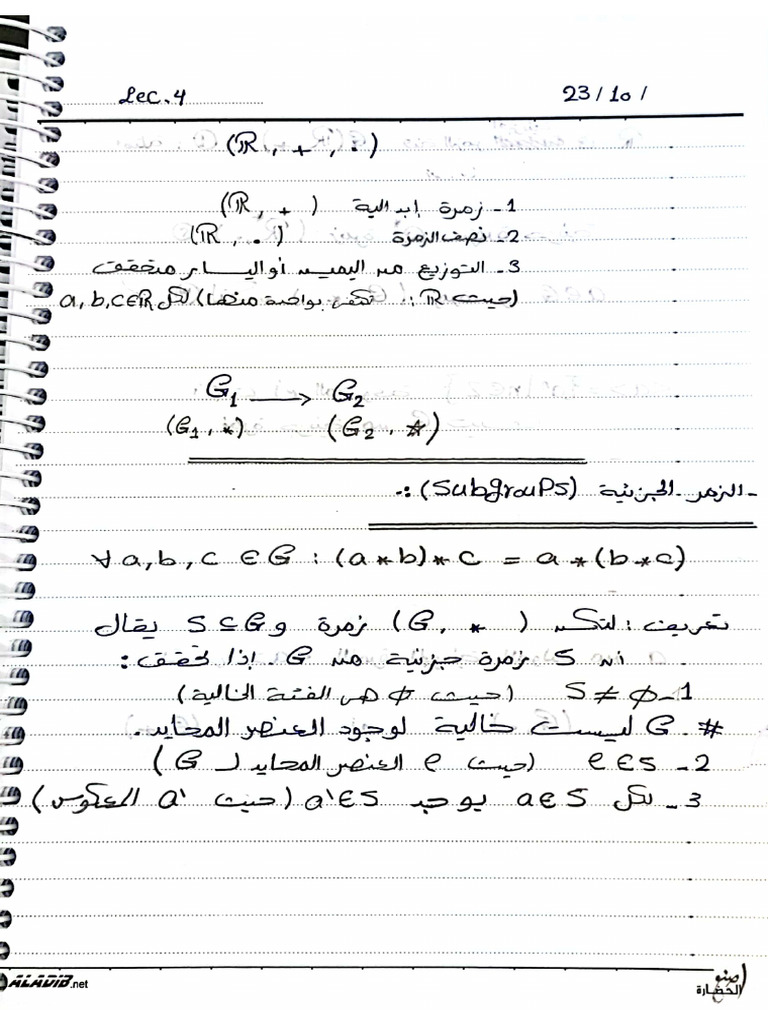 Lec. 4
23/10/
(R, +, .)
1- زمرة إبدالية (R, +)
2- نصف الزمرة (R, .)
3- التوزيع من اليمين أو اليسار متحقق
(حيث R :. نكتفي بواحدة منها) لكل a, b, c ∈ R
G₁ ⟶ G₂
(G₁, *) (G₂, *)
- الزمر الجزئية (Subgroups) :-
∀ a, b, c ∈ G : (a * b) * c = a * (b * c)
تعريف: لتكن (G, *) زمرة و S ⊆ G يقال
أن S زمرة جزئية من G. إذا تحقق:
1- S ≠ ∅ (حيث ∅ هي الفئة الخالية)
# G ليست خالية لوجود العنصر المحايد.
2- e ∈ S (حيث e العنصر المحايد لـ G)
3- لكل a ∈ S يوجد a' ∈ S (حيث a' المعكوس)
ALADIB.net
صنو الحضارة